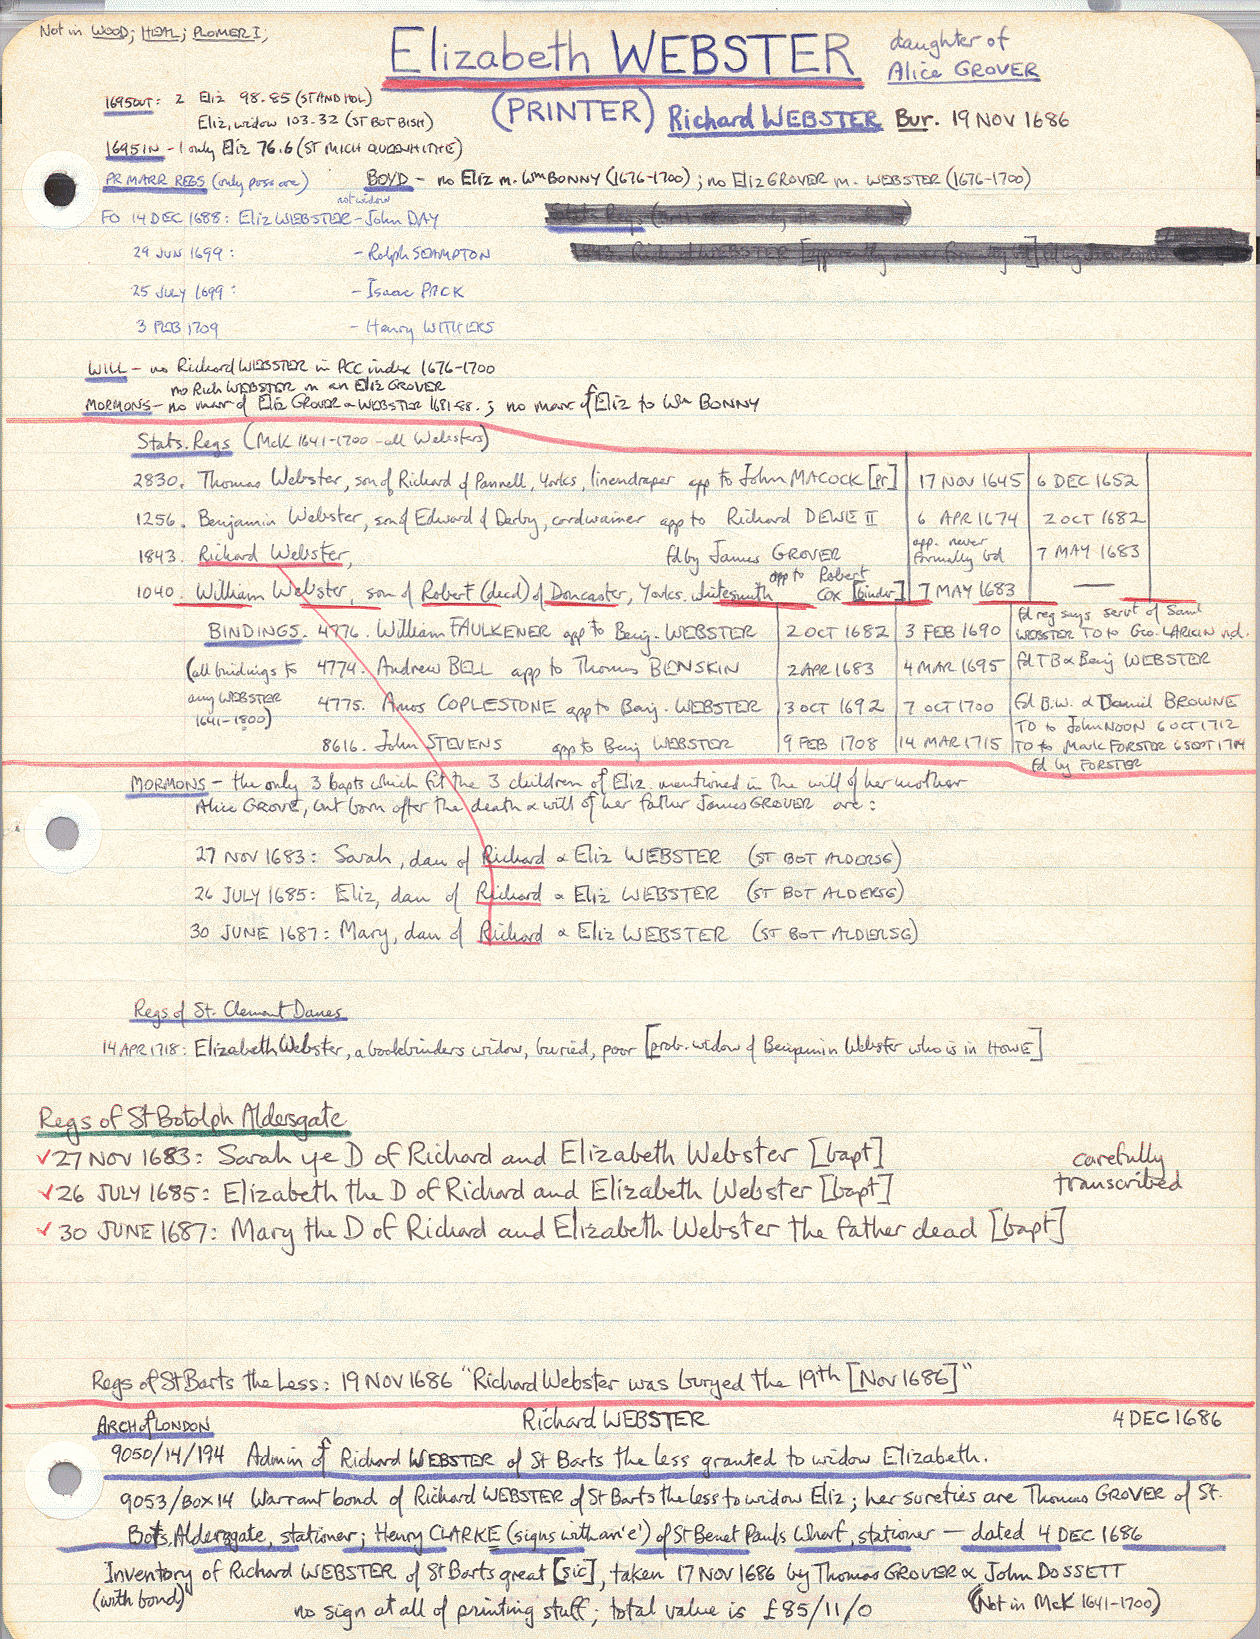 Not in WOOD; HEAL; PLOMER I,
Elizabeth WEBSTER
daughter of
Alice GROVER
(PRINTER) Richard WEBSTER Bur. 19 NOV 1686
1695 OUT: 2 Eliz 98.85 (ST AND HOL)
Eliz, widow 103.32 (ST BOT BISH)
1695 IN - 1 only Eliz 76.6 (ST MICH QUEENHITHE)
PR MARR REGS (only poss are)
BOYD - no Eliz m. Wm BONNY (1676-1700); no Eliz GROVER m. WEBSTER (1676-1700)
not widow
FO 14 DEC 1688: Eliz WEBSTER - John DAY
29 JUN 1699: - Ralph
25 JULY 1699: - Isaac PACK
3 FEB 1709 - Henry WITHERS
WILL - no Richard WEBSTER in PCC index 1676-1700
no Rich WEBSTER m an Eliz GROVER
MORMONS - no marr of Eliz GROVER & WEBSTER 1681-88.; no marr of Eliz to Wm BONNY
Stats. Regs (McK 1641-1700 - all Websters)
2830. Thomas Webster, son of Richard of Pannell, Yorks, linendraper app to John MACOCK [pr] 17 NOV 1645 6 DEC 1652
1256. Benjamin Webster, son of Edward of Derby, cordwainer app to Richard DEWE II 6 APR 1674 2 OCT 1682
1843. Richard Webster, fd by James GROVER app. never formally bd 7 MAY 1683
1040. William Webster, son of Robert (decd) of Doncaster, Yorks. whitesmith app to Robert COX [binder] 7 MAY 1683 —
BINDINGS. 4776. William FAULKENER app to Benj. WEBSTER 2 OCT 1682 3 FEB 1690 fd reg says servt of Saml WEBSTER TO to Geo. LARKIN
(all bindings to any WEBSTER 1641-1800)
4774. Andrew BELL app to Thomas BENSKIN 2 APR 1683 4 MAR 1695 fd TB & Benj WEBSTER
4775. Amos COPLESTONE app to Benj. WEBSTER 3 OCT 1692 7 OCT 1700 fd B.W. & Daniel BROWNE
8616. John STEVENS app to Benj WEBSTER 9 FEB 1708 14 MAR 1715 TO to John NOON 6 OCT 1712
TO to Mark FORSTER 6 SEPT 1714
fd by FORSTER
MORMONS - the only 3 bapts which fit the 3 children of Eliz. mentioned in the will of her mother
Alice GROVE, but born after the death & will of her father James GROVER are:
27 NOV 1683: Sarah, dau of Richard & Eliz WEBSTER (ST BOT ALDERSG)
26 JULY 1685: Eliz, dau of Richard & Eliz WEBSTER (ST BOT ALDERSG)
30 JUNE 1687: Mary, dau of Richard & Eliz WEBSTER (ST BOT ALDERSG)
Regs of St. Clement Danes
14 APR 1718: Elizabeth Webster, a bookbinders widow, buried, poor [prob. widow of Benjamin Webster who is in HOWE]
Regs of St Botolph Aldersgate
✓27 NOV 1683: Sarah ye D of Richard and Elizabeth Webster [bapt]
✓26 JULY 1685: Elizabeth the D of Richard and Elizabeth Webster [bapt]
✓30 JUNE 1687: Mary the D of Richard and Elizabeth Webster the father dead [bapt]
carefully
transcribed
Regs of St Barts the Less: 19 NOV 1686 "Richard Webster was buryed the 19th [Nov 1686]"
ARCH of LONDON Richard WEBSTER 4 DEC 1686
9050/14/194 Admin of Richard WEBSTER of St Barts the less granted to widow Elizabeth.
9053/BOX 14 Warrant bond of Richard WEBSTER of St Barts the less to widow Eliz; her sureties are Thomas GROVER of St.
Bots. Aldersgate, stationer; Henry CLARKE (signs with an 'e') of St Benet Pauls Wharf, stationer — dated 4 DEC 1686
Inventory of Richard WEBSTER of St Barts great [sic], taken 17 NOV 1686 by Thomas GROVER & John DOSSETT
(with bond) no sign at all of printing stuff; total value is £85/11/0 (Not in McK 1641-1700)